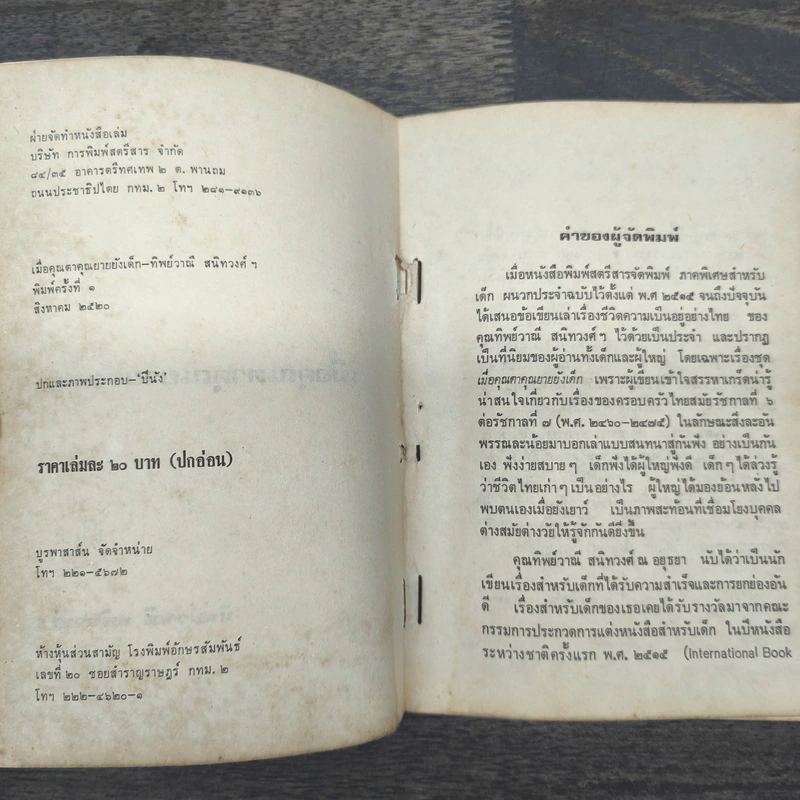 ฝ่ายจัดทำหนังสือเล่ม
บริษัท การพิมพ์สตรีสาร จำกัด
๘๔/๓๕ อาคารตรีทศเทพ ๒ ต. พานถม
ถนนประชาธิปไตย กทม. ๒ โทฯ ๒๘๑-๙๑๓๖
เมื่อคุณตาคุณยายยังเด็ก-ทิพย์วาณี สนิทวงศ์ฯ
พิมพ์ครั้งที่ ๑
สิงหาคม ๒๕๒๐
ปกและภาพประกอบ-'ปีนัง'
ราคาเล่มละ ๒๐ บาท (ปกอ่อน)
บูรพาสาส์น จัดจำหน่าย
โทฯ ๒๒๑-๕๖๗๒
ห้างหุ้นส่วนสามัญ โรงพิมพ์อักษรสัมพันธ์
เลขที่ ๒๐ ซอยสำราญราษฎร์ กทม. ๒
โทฯ ๒๒๒-๔๖๒๐-๑
คำของผู้จัดพิมพ์
เมื่อหนังสือพิมพ์สตรีสารจัดพิมพ์ ภาคพิเศษสำหรับ
เด็ก ผนวกประจำฉบับไว้ตั้งแต่ พ.ศ ๒๕๑๕ จนถึงปัจจุบัน
ได้เสนอข้อเขียนเล่าเรื่องชีวิตความเป็นอยู่อย่างไทย ของ
คุณทิพย์วาณี สนิทวงศ์ฯ ไว้ด้วยเป็นประจำ และปรากฏ
เป็นที่นิยมของผู้อ่านทั้งเด็กและผู้ใหญ่ โดยเฉพาะเรื่องชุด
เมื่อคุณตาคุณยายยังเด็ก เพราะผู้เขียนเข้าใจสรรหาเกร็ดน่ารู้
น่าสนใจเกี่ยวกับเรื่องของครอบครัวไทยสมัยรัชกาลที่ ๖
ต่อรัชกาลที่ ๗ (พ.ศ. ๒๔๖๐-๒๔๗๕) ในลักษณะสิ่งละอัน
พรรณละน้อยมาบอกเล่าแบบสนทนาสู่กันฟัง อย่างเป็นกัน
เอง ฟังง่ายสบาย ๆ เด็กฟังได้ผู้ใหญ่ฟังดี เด็ก ๆ ได้ล่วงรู้
ว่าชีวิตไทยเก่า ๆ เป็นอย่างไร ผู้ใหญ่ได้มองย้อนหลังไป
พบตนเองเมื่อยังเยาว์ เป็นภาพสะท้อนที่เชื่อมโยงบุคคล
ต่างสมัยต่างวัยให้รู้จักกันดียิ่งขึ้น
คุณทิพย์วาณี สนิทวงศ์ ณ อยุธยา นับได้ว่าเป็นนัก
เขียนเรื่องสำหรับเด็กที่ได้รับความสำเร็จและการยกย่องอัน
ดี เรื่องสำหรับเด็กของเธอเคยได้รับรางวัลมาจากคณะ
กรรมการประกวดการแต่งหนังสือสำหรับเด็ก ในปีหนังสือ
ระหว่างชาติครั้งแรก พ.ศ. ๒๕๑๕ (International Book